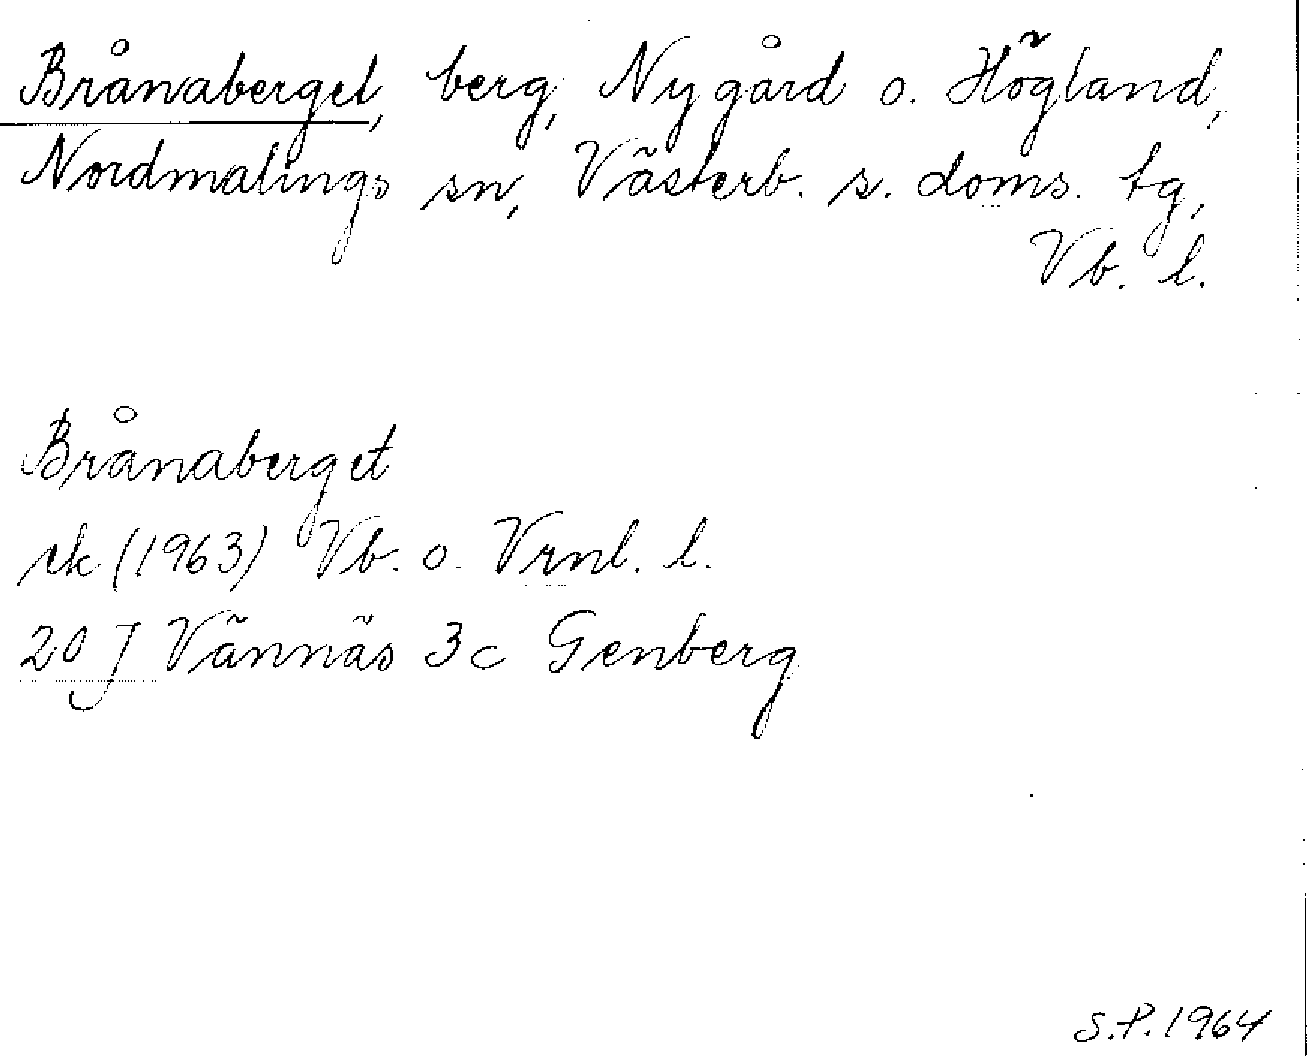 Brånaberget, berg, Nygård o. Högland,
Nordmalings sn, Västerb. s. doms. tg,
Vb. l.
Brånaberget
rk (1963) Vb. o. Vrnl. l.
20 J Vännäs 3c Genberg
S.P. 1964